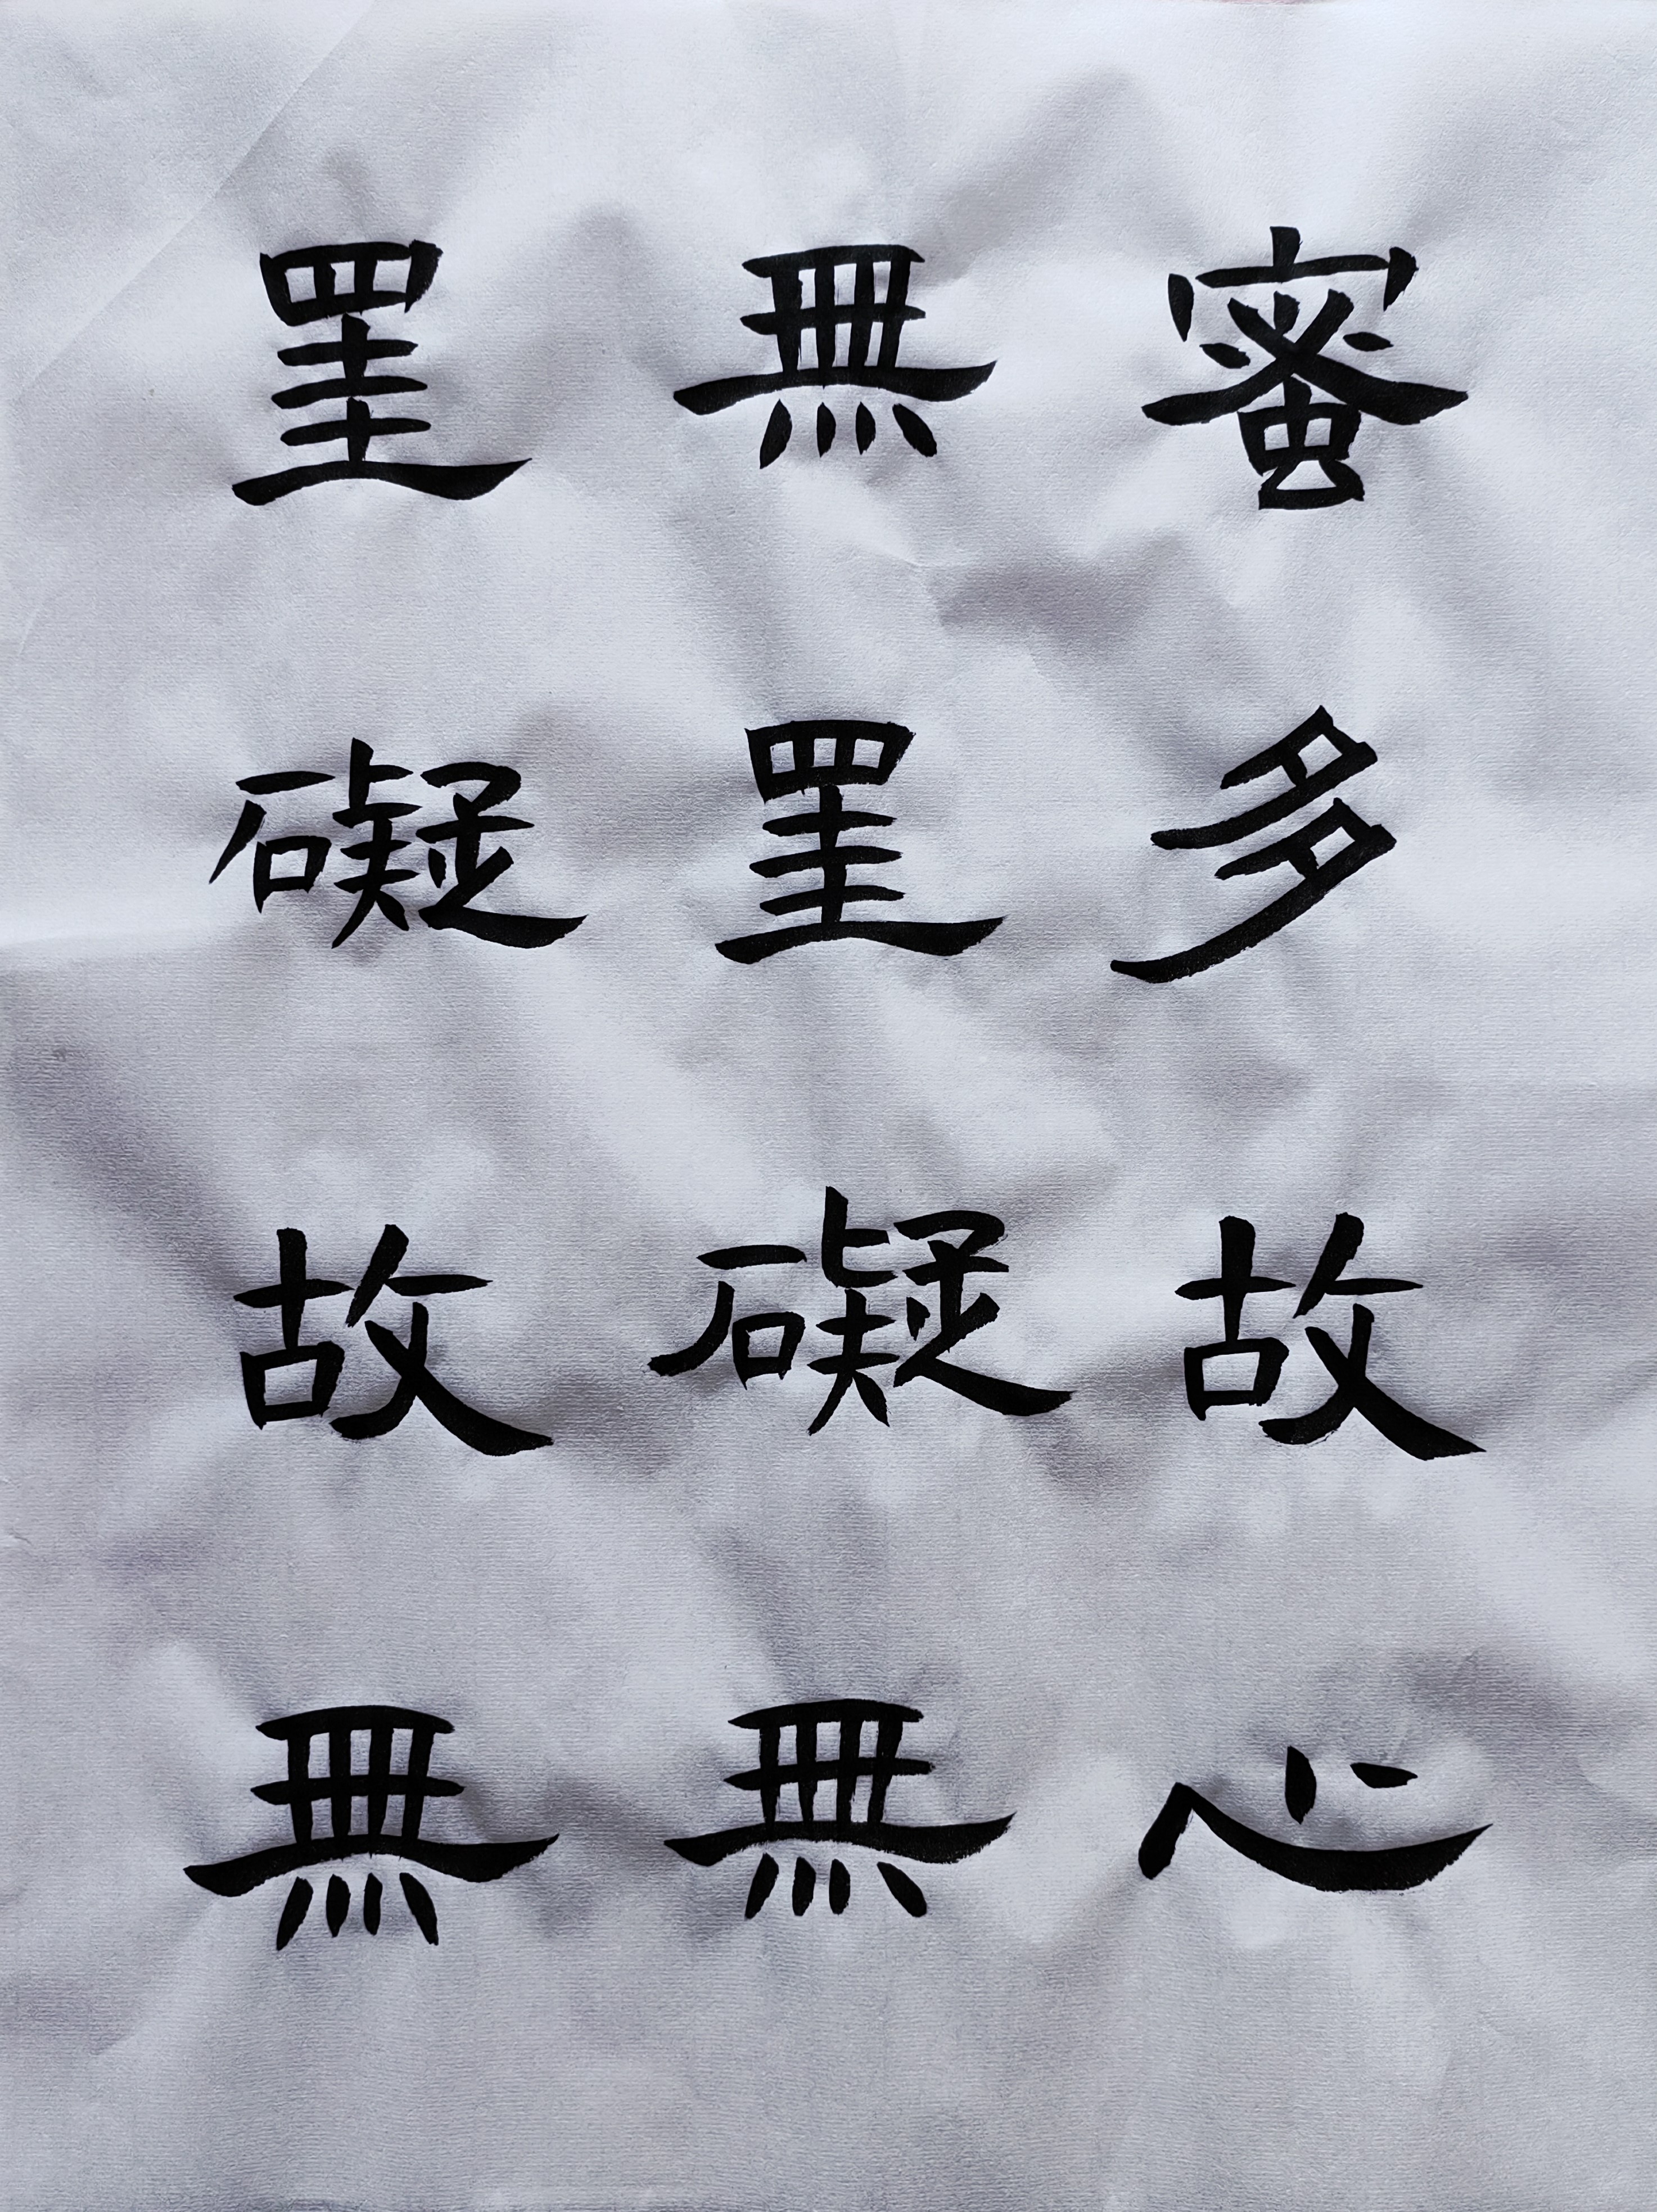 蜜多故心
無罣礙無
罣礙故無